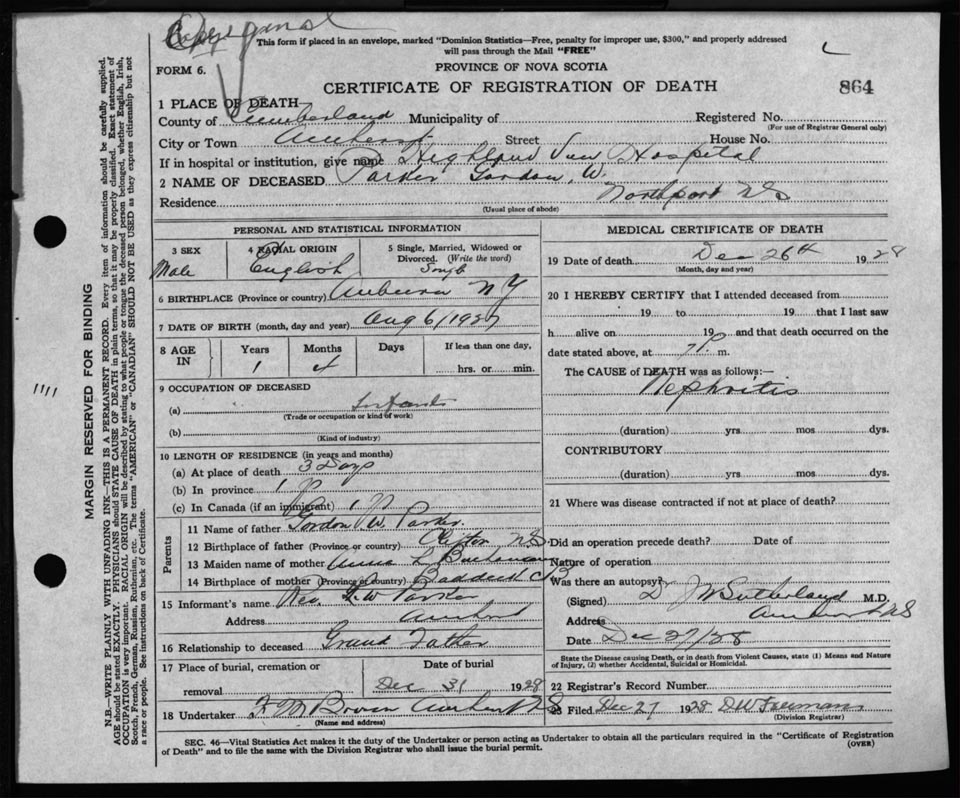 This form if placed in an envelope, marked "Dominion Statistics—Free, penalty for improper use, $300," and properly addressed
will pass through the Mail "FREE"
FORM 6.
PROVINCE OF NOVA SCOTIA
CERTIFICATE OF REGISTRATION OF DEATH
864
1 PLACE OF DEATH
County of Cumberland Municipality of Registered No.
(For use of Registrar General only)
City or Town Amherst Street House No.
If in hospital or institution, give name Highland View Hospital
2 NAME OF DECEASED Parker Gordon, W.
Residence Northport NS
(Usual place of abode)
PERSONAL AND STATISTICAL INFORMATION
3 SEX Male
4 RACIAL ORIGIN English
5 Single, Married, Widowed or Divorced. (Write the word) Single
6 BIRTHPLACE (Province or country) Auburn NY
7 DATE OF BIRTH (month, day and year) Aug 6/1927
8 AGE IN Years Months Days If less than one day,
1 4 hrs. or min.
9 OCCUPATION OF DECEASED
(a) Infant
(Trade or occupation or kind of work)
(b)
(Kind of industry)
10 LENGTH OF RESIDENCE (in years and months)
(a) At place of death 3 Days
(b) In province 1
(c) In Canada (if an immigrant) 1
Parents
11 Name of father Gordon W. Parker.
12 Birthplace of father (Province or country) Clifton NS
13 Maiden name of mother Anna L Buchanan
14 Birthplace of mother (Province or country) Baddeck CB
15 Informant's name Rev. Parker
Address Amherst
16 Relationship to deceased Grand Father
17 Place of burial, cremation or removal
Date of burial
Dec 31 1928
18 Undertaker Brown Amherst NS
(Name and address)
MEDICAL CERTIFICATE OF DEATH
19 Date of death Dec 26th 1928
(Month, day and year)
20 I HEREBY CERTIFY that I attended deceased from
19 to 19 that I last saw
h alive on 19 and that death occurred on
date stated above, at 7 P. m.
The CAUSE of DEATH was as follows:—
Nephritis
(duration) yrs mos dys.
CONTRIBUTORY
(duration) yrs. mos. dys.
21 Where was disease contracted if not at place of death?
Did an operation precede death? Date of
Nature of operation
Was there an autopsy?
(Signed) D J W Sutherland M.D.
Address Amherst NS
Date Dec 27/28
State the Disease causing Death, or in death from Violent Causes, state (1) Means and Nature
of Injury, (2) whether Accidental, Suicidal or Homicidal.
22 Registrar's Record Number
23 Filed Dec 27 1928 DW Freeman
(Division Registrar)
SEC. 46—Vital Statistics Act makes it the duty of the Undertaker or person acting as Undertaker to obtain all the particulars required in the "Certificate of Registration
of Death" and to file the same with the Division Registrar who shall issue the burial permit.
(OVER)
MARGIN RESERVED FOR BINDING
N.B.—WRITE PLAINLY WITH UNFADING INK—THIS IS A PERMANENT RECORD. Every item of information should be carefully supplied.
AGE should be stated EXACTLY. PHYSICIANS should STATE CAUSE OF DEATH in plain terms, so that it may be properly classified. Exact statement of
OCCUPATION is very important. RACIAL ORIGIN will be described by stating to what people or tongue the deceased person belonged, whether English, Irish,
Scotch, French, German, Russian, Ruthenian, etc. The terms "AMERICAN" or "CANADIAN" SHOULD NOT BE USED as they express citizenship but not
a race or people. See instructions on back of Certificate.